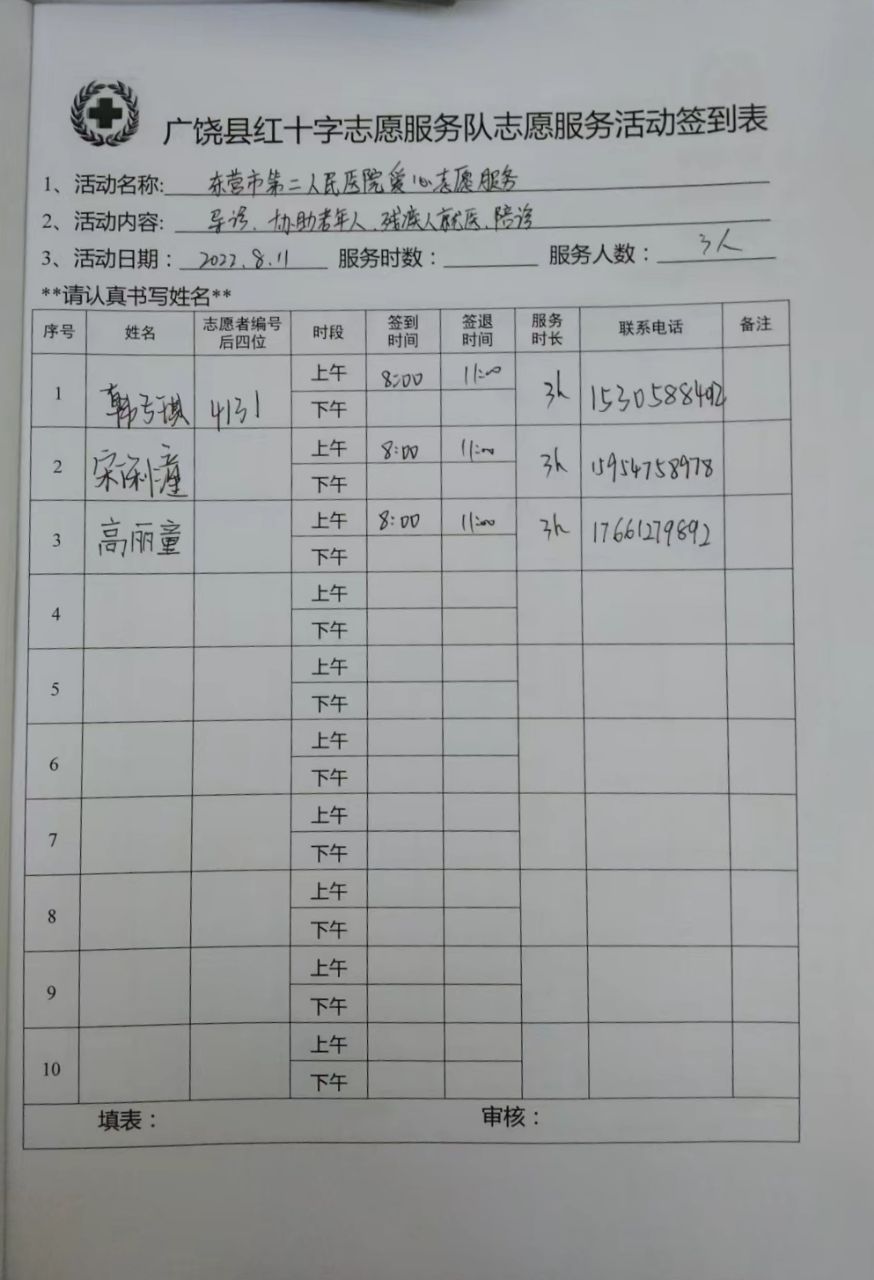 广饶县红十字志愿服务队志愿服务活动签到表
1、活动名称: 东营市第二人民医院爱心志愿服务
2、活动内容: 导诊、协助老年人、残疾人就医、陪诊
3、活动日期： 2022.8.11 服务时数： 服务人数： 3人
**请认真书写姓名**
序号 姓名 志愿者编号后四位 时段 签到时间 签退时间 服务时长 联系电话 备注
1 4131 上午 8:00 11:00 3h 1530588492
下午
2 上午 8:00 11:00 3h 15954758978
下午
3 高丽童 上午 8:00 11:00 3h 17661279892
下午
4 上午
下午
5 上午
下午
6 上午
下午
7 上午
下午
8 上午
下午
9 上午
下午
10 上午
下午
填表： 审核：